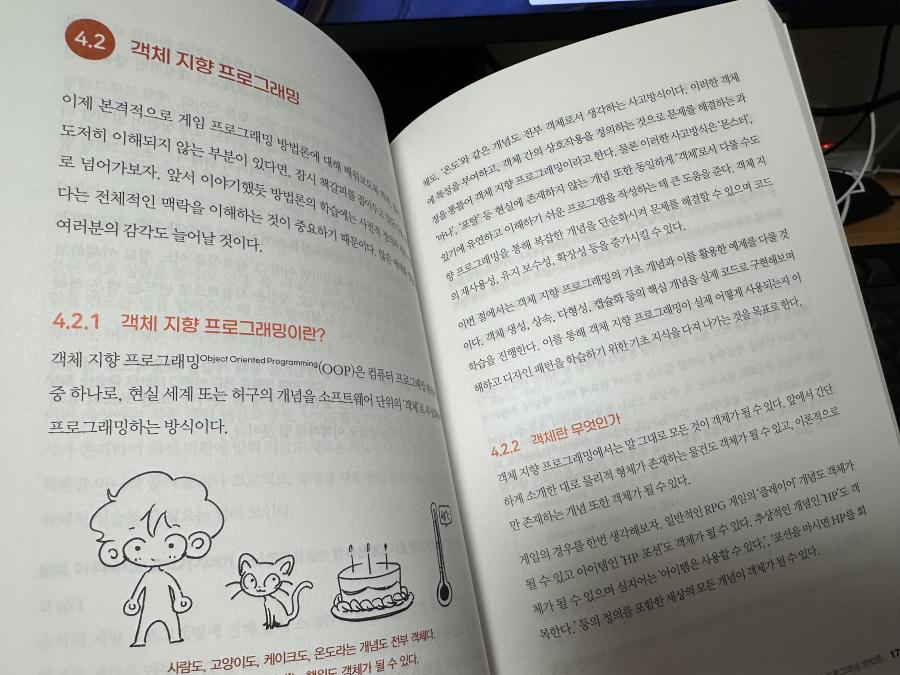 4.2 객체 지향 프로그래밍
이제 본격적으로 게임 프로그래밍 방법론에 대해 배워보도록 하자.
도저히 이해되지 않는 부분이 있다면, 잠시 책갈피를 꽂아두고
로 넘어가보자. 앞서 이야기했듯 방법론의 학습에는 사전적 정의
다는 전체적인 맥락을 이해하는 것이 중요하기 때문이다. 많은 예제를
여러분의 감각도 늘어날 것이다.
4.2.1 객체 지향 프로그래밍이란?
객체 지향 프로그래밍Object Oriented Programming(OOP)은 컴퓨터 프로그래밍
중 하나로, 현실 세계 또는 허구의 개념을 소프트웨어 단위의 '객체'로
프로그래밍하는 방식이다.
사람도, 고양이도, 케이크도, 온도라는 개념도 전부 객체다.
행위도 객체가 될 수 있다.
체도, '온도'와 같은 개념도 전부 객체로서 생각하는 사고방식이다. 이러한 객체
에 특성을 부여하고, 객체 간의 상호작용을 정의하는 것으로 문제를 해결하는 과
정을 통틀어 객체 지향 프로그래밍이라고 한다. 물론 이러한 사고방식은 '몬스터',
'마나', '포탈' 등 현실에 존재하지 않는 개념 또한 동일하게 '객체'로서 다룰 수도
있기에 유연하고 이해하기 쉬운 프로그램을 작성하는 데 큰 도움을 준다. 객체 지
향 프로그래밍을 통해 복잡한 개념을 단순화시켜 문제를 해결할 수 있으며 코드
의 재사용성, 유지 보수성, 확장성 등을 증가시킬 수 있다.
이번 절에서는 객체 지향 프로그래밍의 기초 개념과 이를 활용한 예제를 다룰 것
이다. 객체 생성, 상속, 다형성, 캡슐화 등의 핵심 개념을 실제 코드로 구현해보며
학습을 진행한다. 이를 통해 객체 지향 프로그래밍이 실제 어떻게 사용되는지 이
해하고 디자인 패턴을 학습하기 위한 기초 지식을 다져 나가는 것을 목표로 한다.
4.2.2 객체란 무엇인가
객체 지향 프로그래밍에서는 말 그대로 모든 것이 객체가 될 수 있다. 앞에서 간단
하게 소개한 대로 물리적 형체가 존재하는 물건도 객체가 될 수 있고, 이론적으로
만 존재하는 개념 또한 객체가 될 수 있다.
게임의 경우를 한번 생각해보자. 일반적인 RPG 게임의 '플레이어' 개념도 객체가
될 수 있고 아이템인 'HP 포션'도 객체가 될 수 있다. 추상적인 개념인 'HP'도 객
체가 될 수 있으며 심지어는 '아이템은 사용할 수 있다.', '포션을 마시면 HP를 회
복한다.' 등의 정의를 포함한 세상의 모든 개념이 객체가 될 수 있다.
프로그래밍 방법론 17